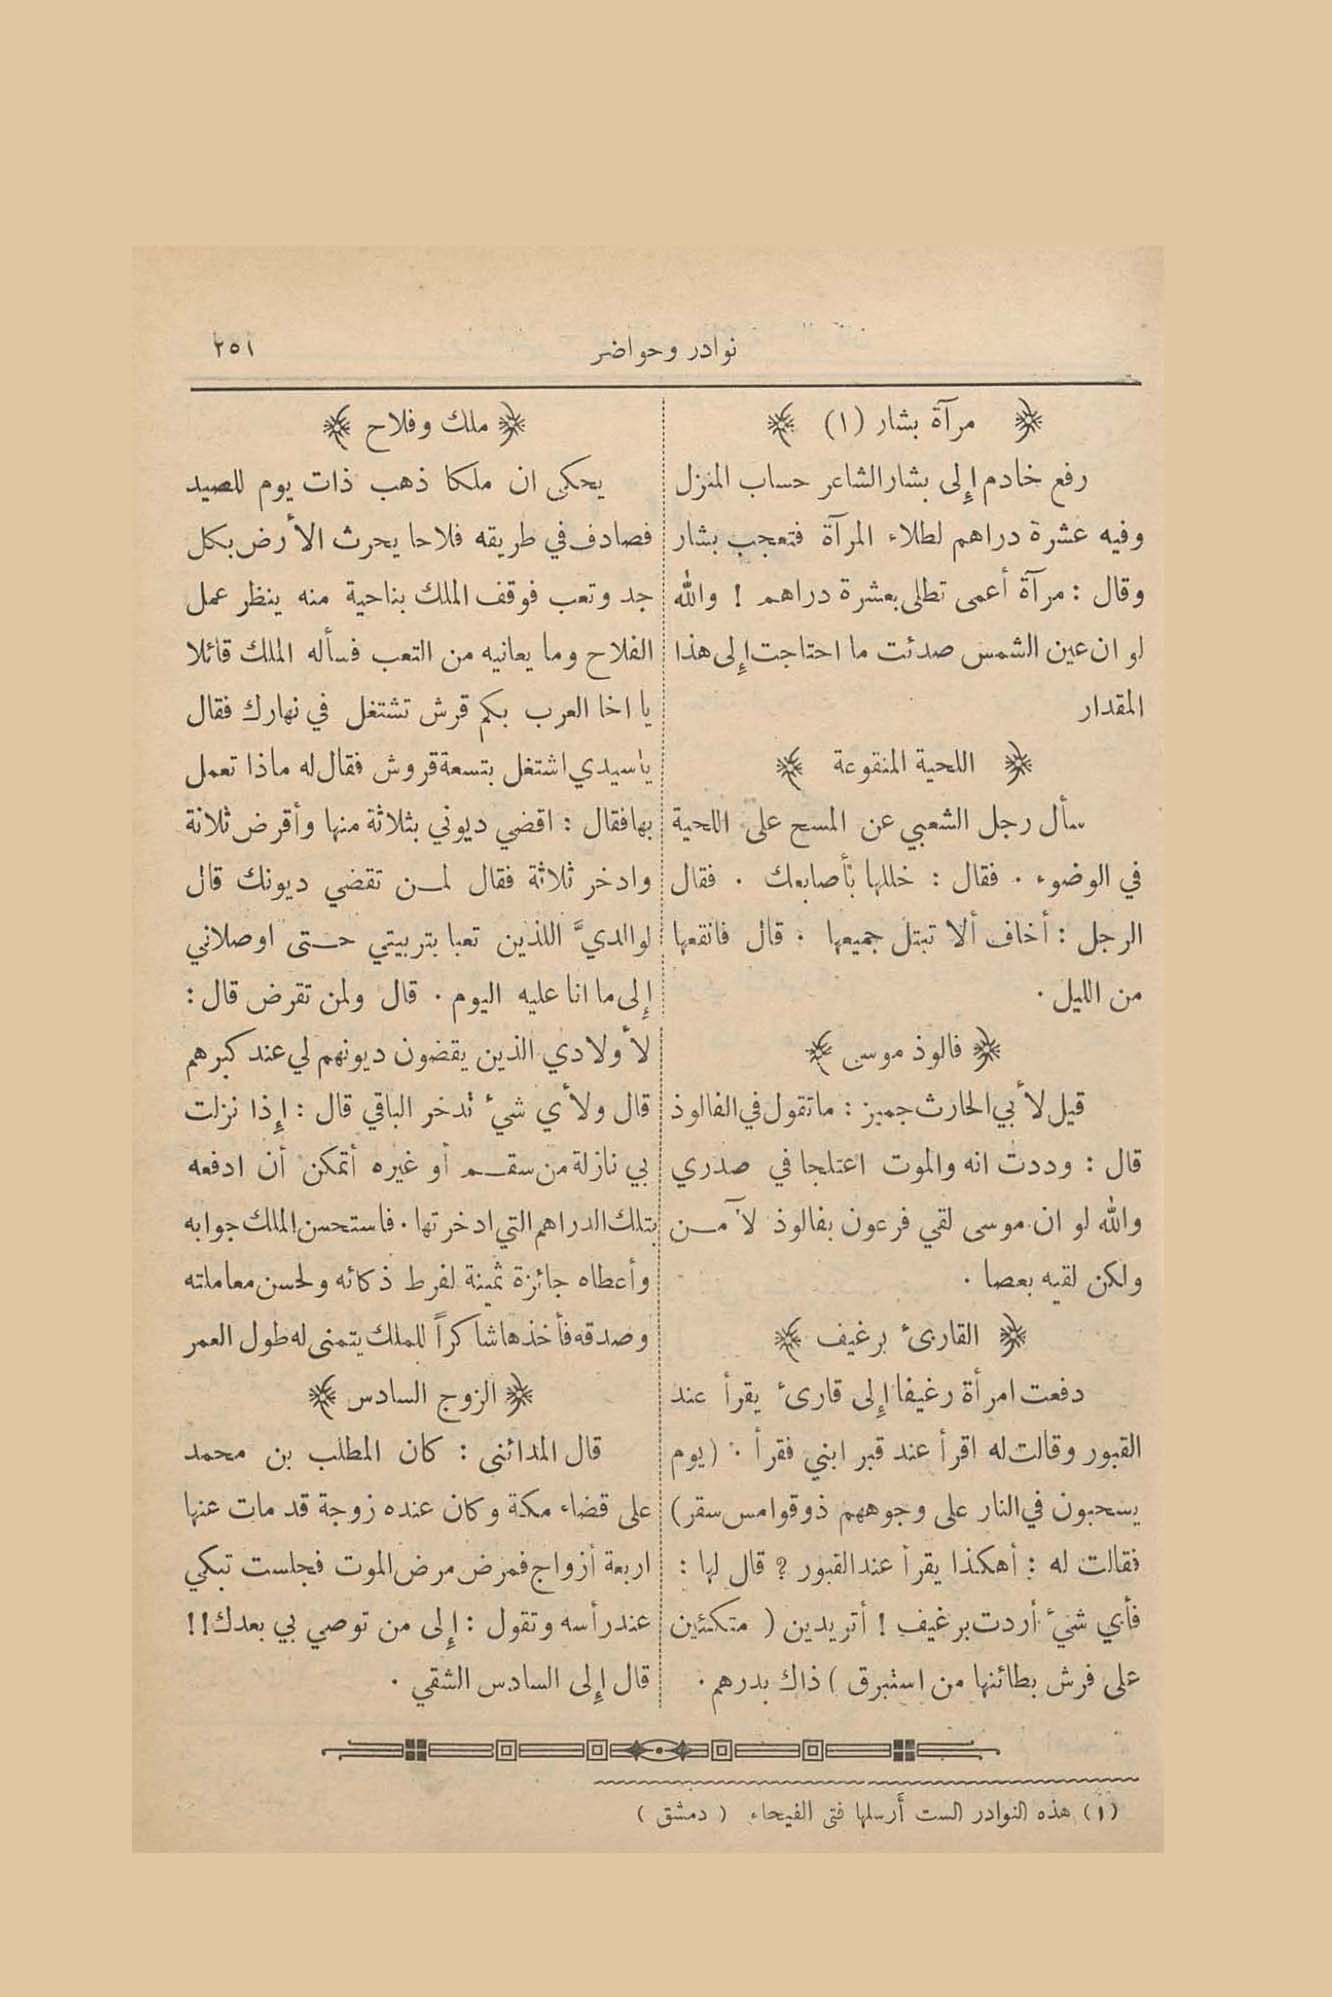 نوادر وحواضر
٢٥١
مرآة بشار (١)
رفع خادم إلى بشار الشاعر حساب المنزل
وفيه عشرة دراهم لطلاء المرآة فتعجب بشار
وقال : مرآة أعمى تطلى بعشرة دراهم ! والله
لو ان عين الشمس صدئت ما احتاجت إلى هذا
المقدار
اللحية المنقوعة
سأل رجل الشعبي عن المسح على اللحية
في الوضوء . فقال : خللها بأصابعك . فقال
الرجل : أخاف ألا تبتل جميعها . قال فانقعها
من الليل .
فالوذ موسى
قيل لأبي الحارث جميز : ما تقول في الفالوذ
قال : وددت انه والموت اعتلجا في صدري
والله لو ان موسى لقي فرعون بفالوذ لآمن
ولكن لقيه بعصا .
القارئ برغيف
دفعت امرأة رغيفا إلى قارئ يقرأ عند
القبور وقالت له اقرأ عند قبر ابني فقرأ : (يوم
يسحبون في النار على وجوههم ذوقوا مس سقر)
فقالت له : أهكذا يقرأ عند القبور ؟ قال لها :
فأي شيء أردت برغيف ! أتريدين ( متكئين
على فرش بطائنها من استبرق ) ذاك بدرهم .
ملك وفلاح
يحكى ان ملكا ذهب ذات يوم للصيد
فصادف في طريقه فلاحا يحرث الأرض بكل
جد وتعب فوقف الملك بناحية منه ينظر عمل
الفلاح وما يعانيه من التعب فسأله الملك قائلا
يا اخا العرب بكم قرش تشتغل في نهارك فقال
يا سيدي اشتغل بتسعة قروش فقال له ماذا تعمل
بها فقال : اقضي ديوني بثلاثة منها وأقرض ثلاثة
وادخر ثلاثة فقال لمن تقضي ديونك قال
لوالديَّ اللذين تعبا بتربيتي حتى اوصلاني
إلى ما انا عليه اليوم . قال ولمن تقرض قال :
لأولادي الذين يقضون ديونهم لي عند كبرهم
قال ولأي شيء تدخر الباقي قال : إذا نزلت
بي نازلة من سقم أو غيره أتمكن أن ادفعه
بتلك الدراهم التي ادخرتها . فاستحسن الملك جوابه
وأعطاه جائزة ثمينة لفرط ذكائه ولحسن معاملته
وصدقه فأخذها شاكراً للملك يتمنى له طول العمر
الزوج السادس
قال المدائني : كان المطلب بن محمد
على قضاء مكة وكان عنده زوجة قد مات عنها
اربعة أزواج فمرض مرض الموت فجلست تبكي
عند رأسه وتقول : إلى من توصي بي بعدك !!
قال إلى السادس الشقي .
(١) هذه النوادر الست أرسلها فتى الفيحاء ( دمشق )